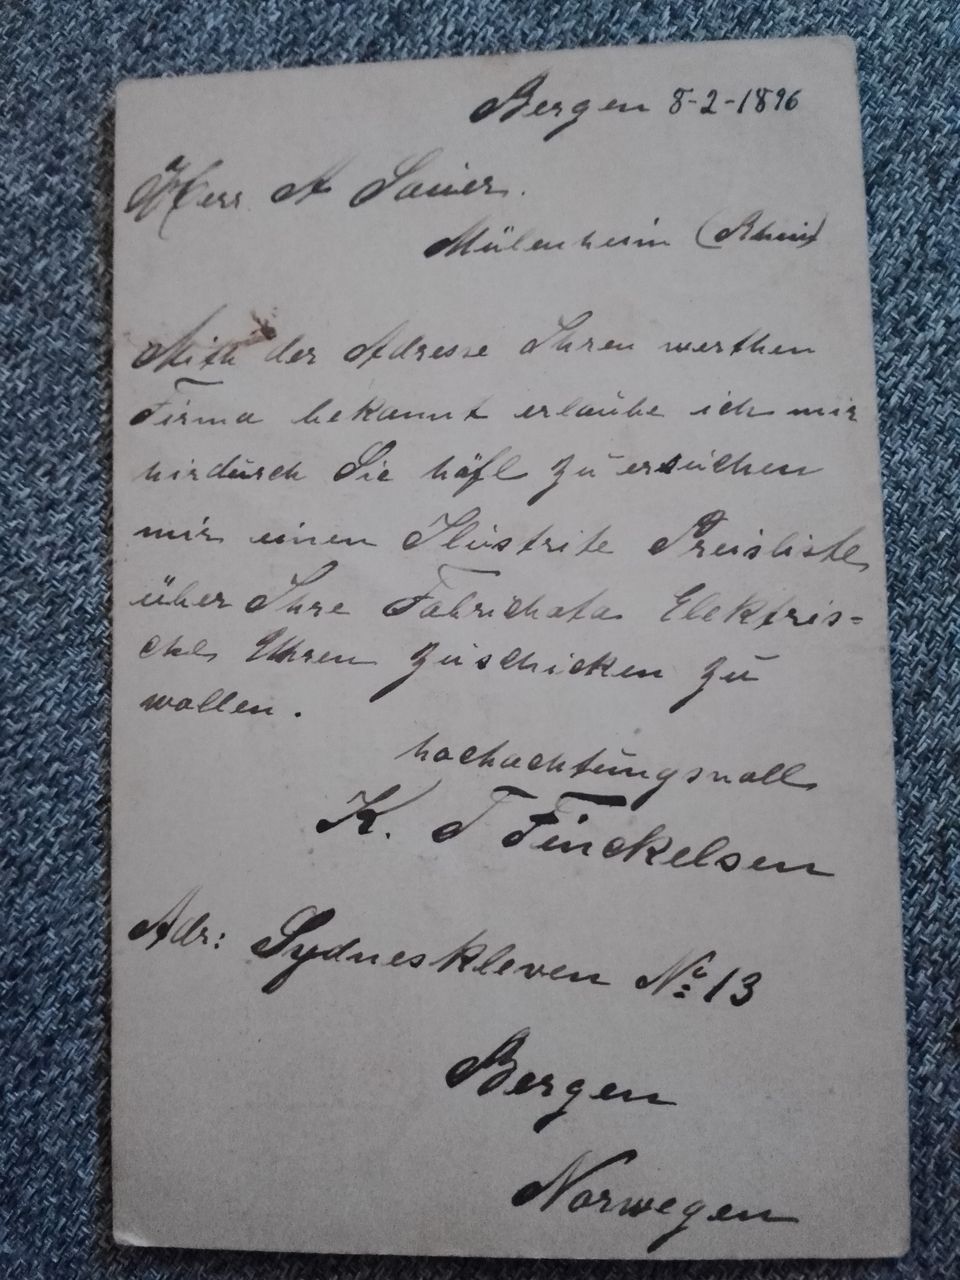 Bergen 8-2-1896
Herr A Sauer.
Mülenheim (Rhein)
Mith der Adresse Ihren werthen
Firma bekannt erlaube ich mir
hirdurch Sie höfl zu ersuchen
mir einen Ilustrite Preisliste
über Ihre Fabrichata Elektris=
che Uhren zuschicken zu
wollen.
hochachtungsvoll
K. J Finckelsen
Adr: Sydneskleven No 13
Bergen
Norwegen